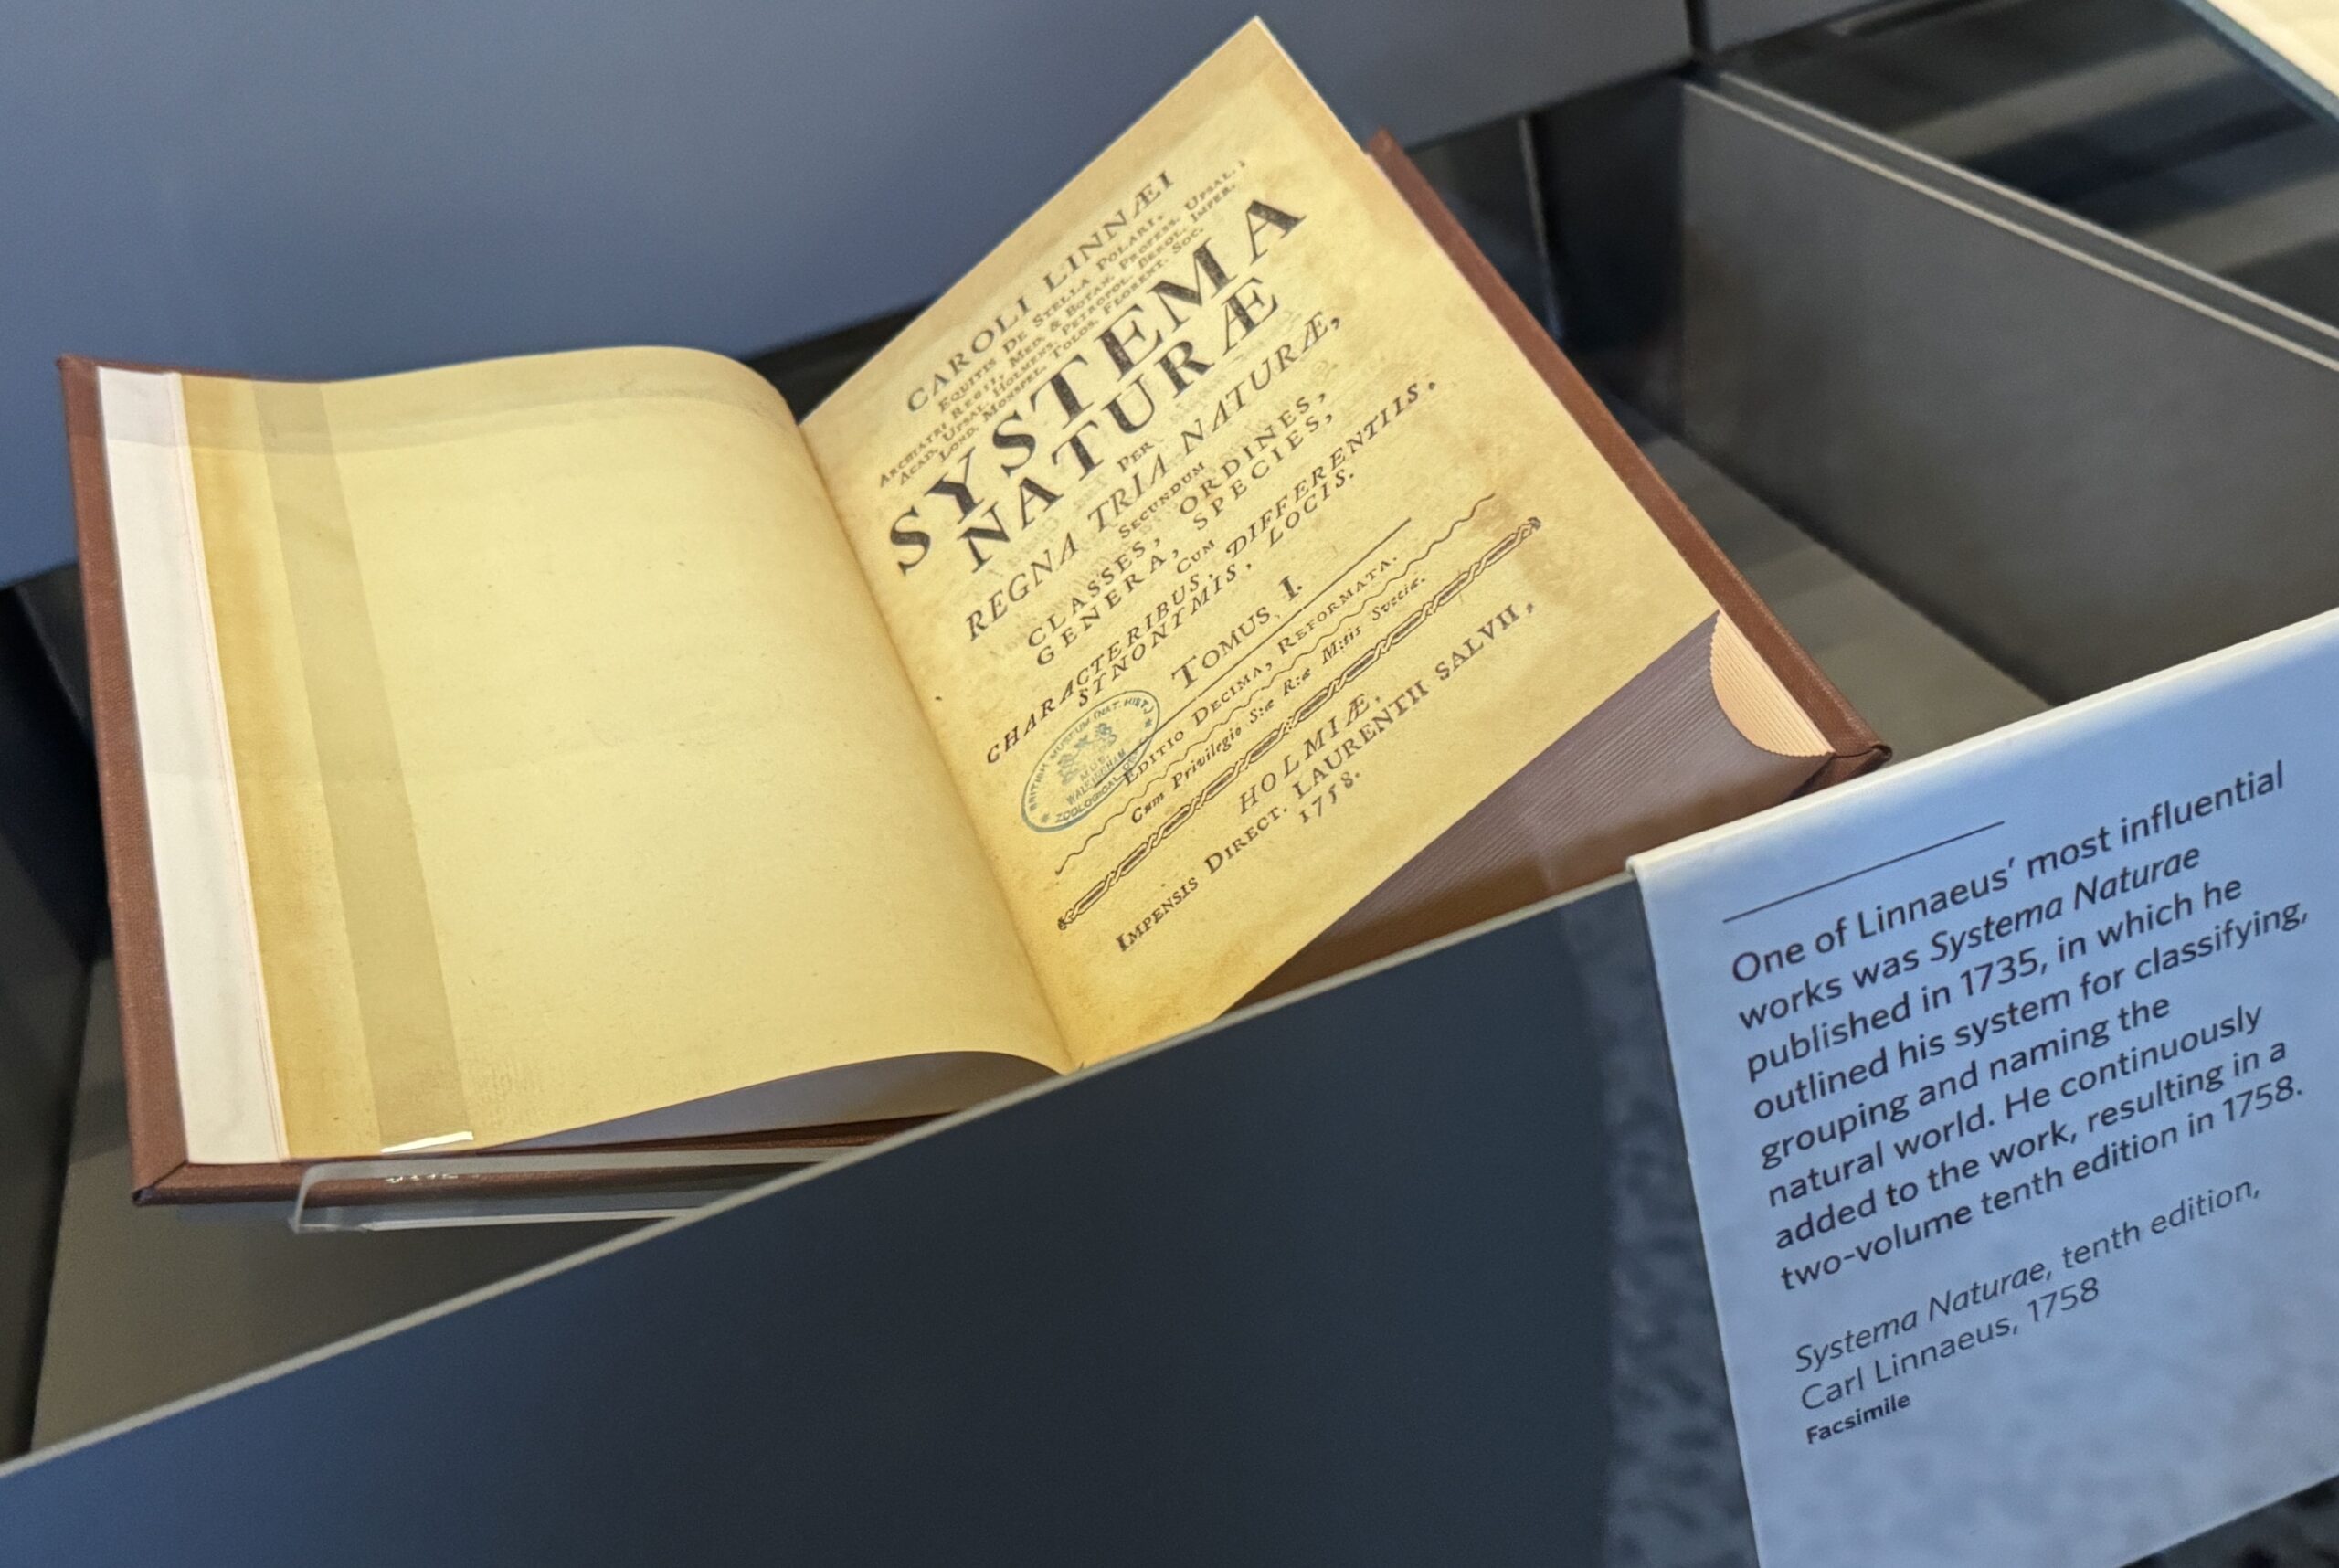 CAROLI LINNÆI
EQUITIS DE STELLA POLARI,
ARCHIATRI REGII, MED. & BOTAN. PROFESS. UPSAL.;
ACAD. UPSAL. HOLMENS. PETROPOL. BEROL. IMPER.
LOND. MONSPEL. TOLOS. FLORENT. SOC.
SYSTEMA
NATURÆ
PER
REGNA TRIA NATURÆ,
SECUNDUM
CLASSES, ORDINES,
GENERA, SPECIES,
CUM
CHARACTERIBUS, DIFFERENTIIS.
SYNONYMIS, LOCIS.
TOMUS I.
EDITIO DECIMA, REFORMATA.
Cum Privilegio S:æ R:æ M:tis Sveciæ.
HOLMIÆ,
IMPENSIS DIRECT. LAURENTII SALVII,
1758.
BRITISH MUSEUM (NAT. HIST.)
ZOOLOGICAL
One of Linnaeus' most influential
works was Systema Naturae
published in 1735, in which he
outlined his system for classifying,
grouping and naming the
natural world. He continuously
added to the work, resulting in a
two-volume tenth edition in 1758.
Systema Naturae, tenth edition,
Carl Linnaeus, 1758
Facsimile